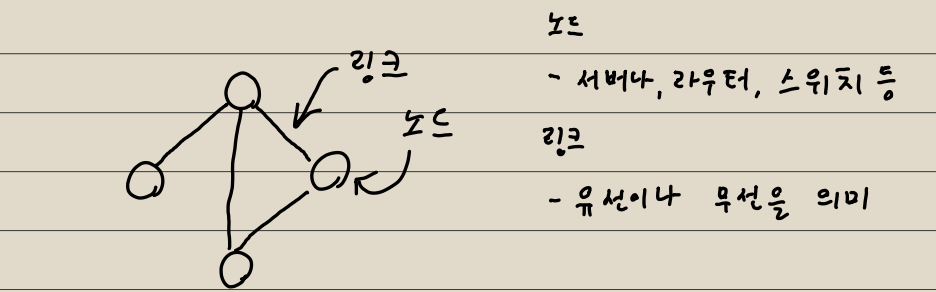 링크
노드
노드
- 서버나, 라우터, 스위치 등
링크
- 유선이나 무선을 의미